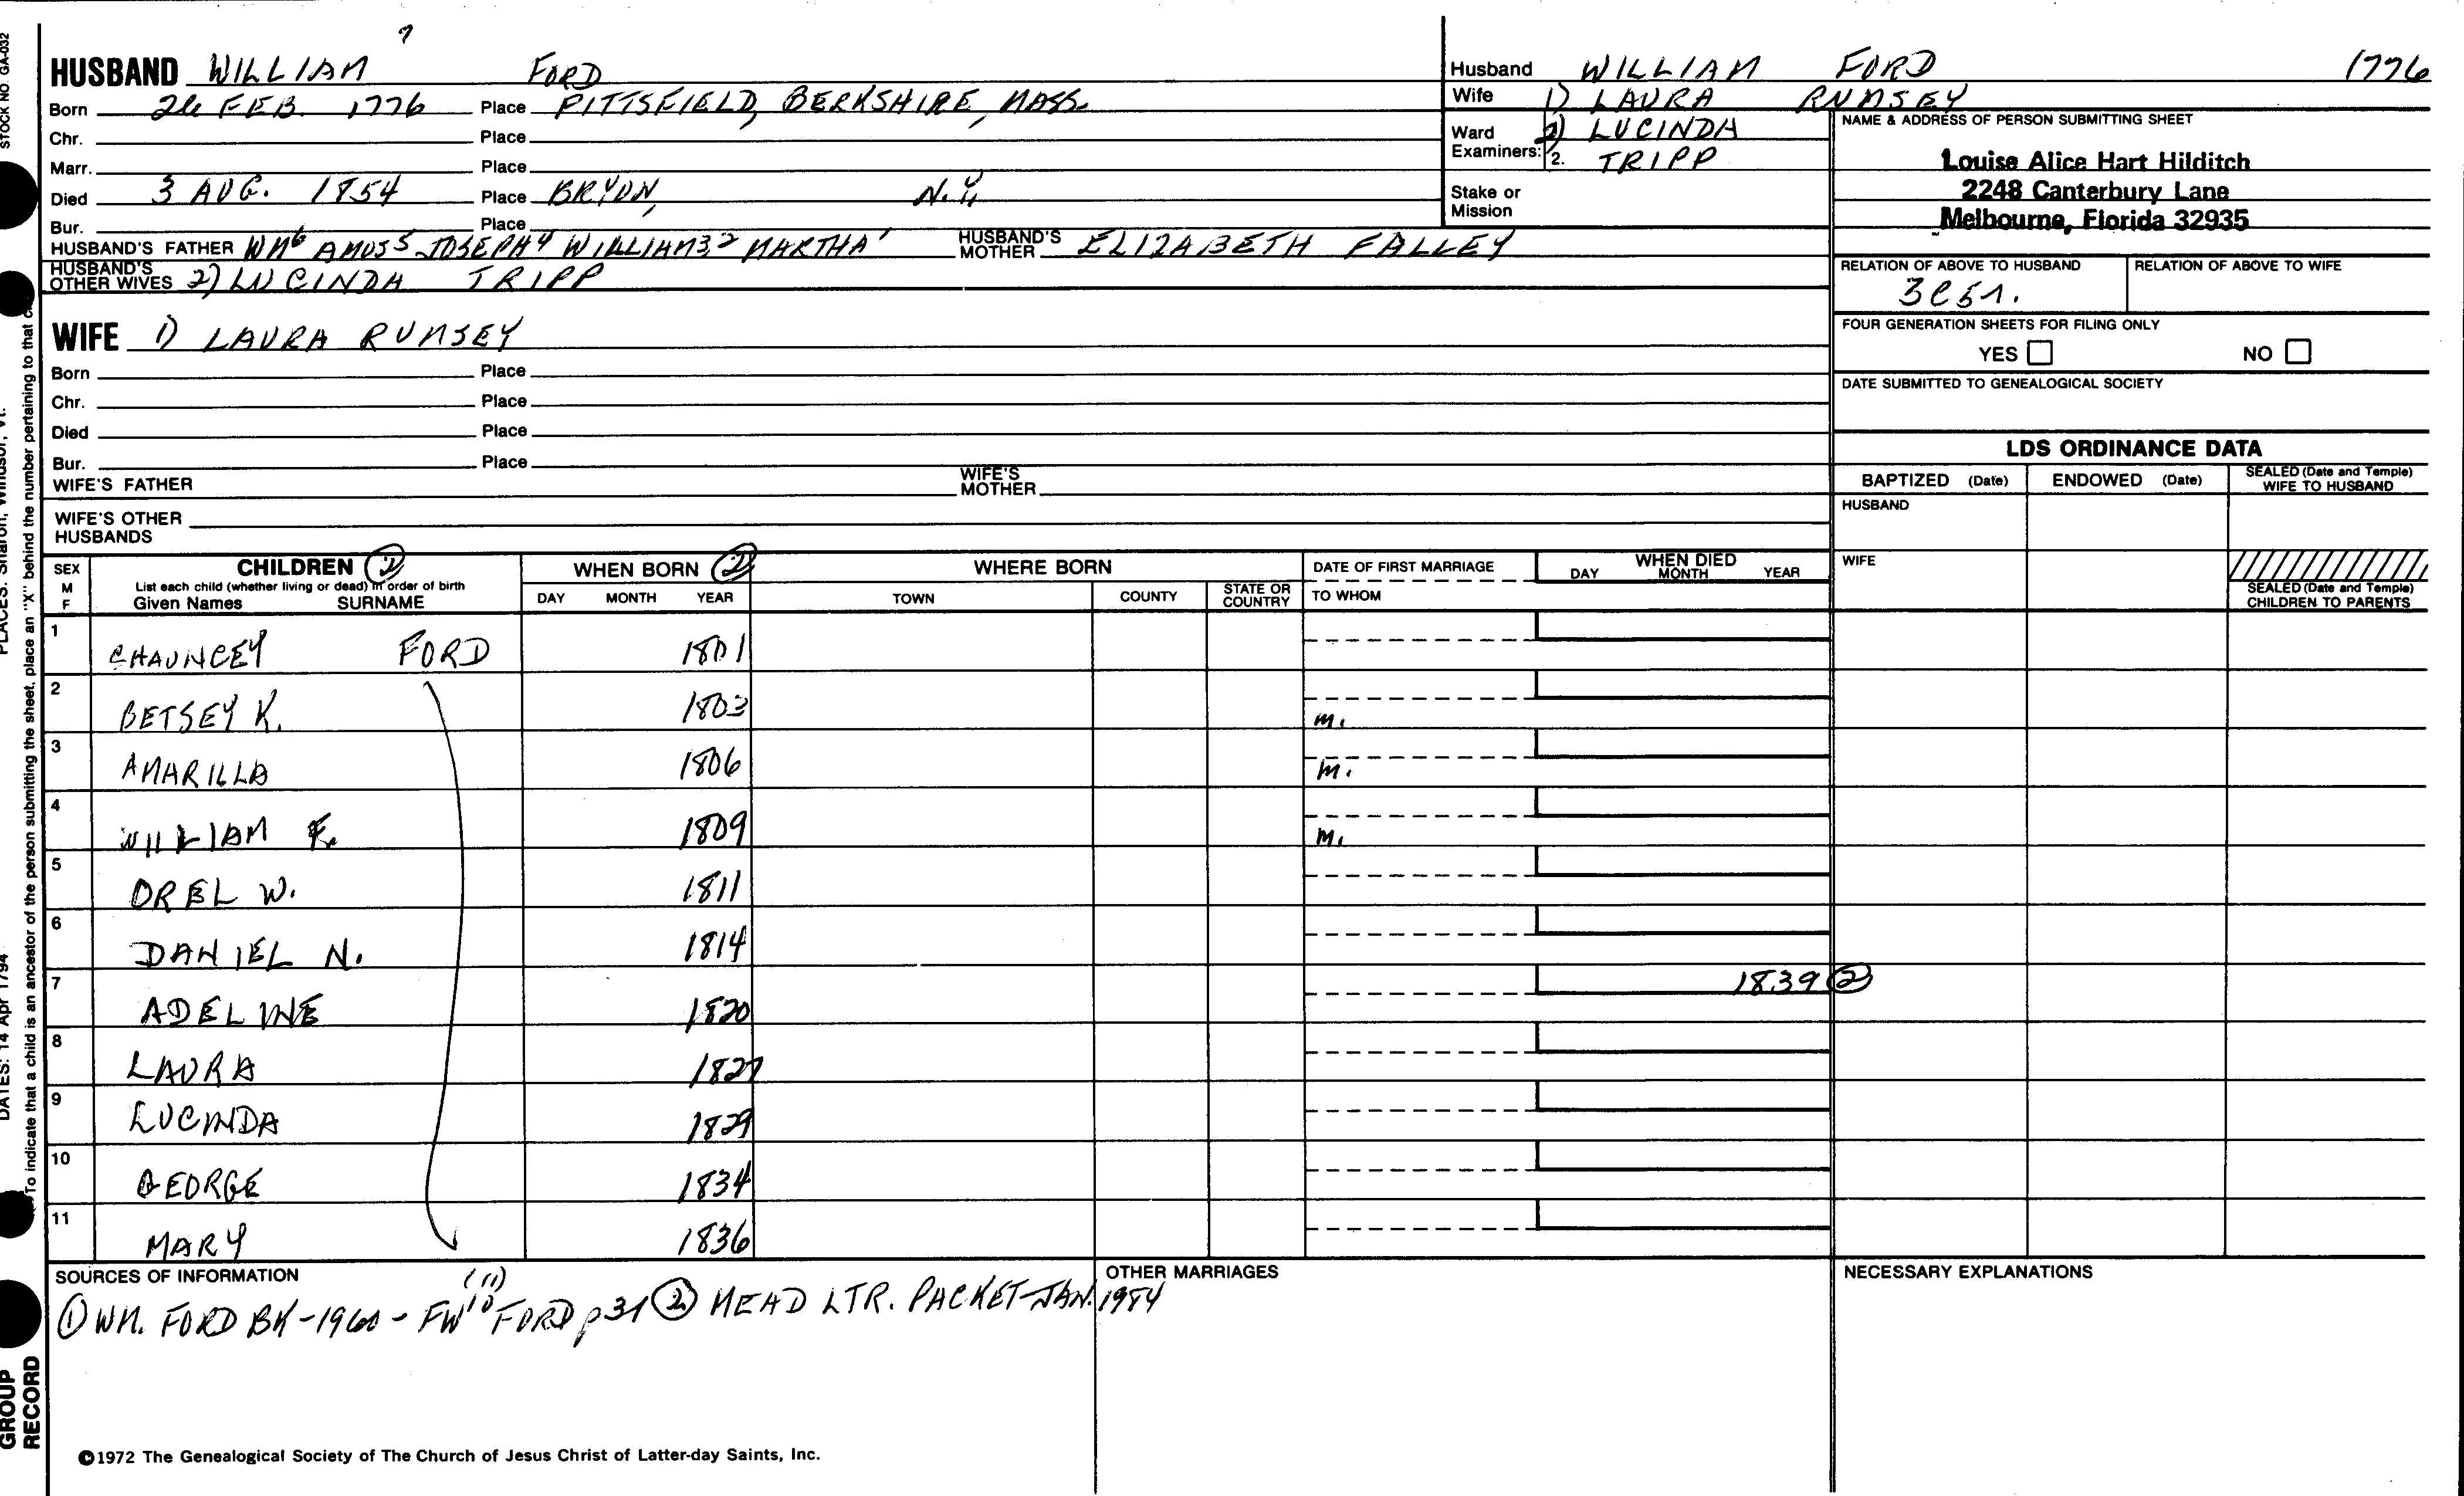 7
HUSBAND WILLIAM FORD
Born 26 FEB. 1776 Place PITTSFIELD, BERKSHIRE, MASS.
Chr. Place
Marr. Place
Died 3 AUG. 1854 Place BRYON, N.Y.
Bur. Place
HUSBAND'S FATHER WM6 AMOS5 JOSEPH4 WILLIAM3,2 MARTHA1 HUSBAND'S MOTHER ELIZABETH FALLEY
HUSBAND'S OTHER WIVES 2) LUCINDA TRIPP
WIFE 1) LAURA RUMSEY
Born Place
Chr. Place
Died Place
Bur. Place
WIFE'S FATHER WIFE'S MOTHER
WIFE'S OTHER HUSBANDS
Husband WILLIAM FORD 1776
Wife 1) LAURA RUMSEY
Ward Examiners: 2) LUCINDA
2. TRIPP
Stake or Mission
NAME & ADDRESS OF PERSON SUBMITTING SHEET
Louise Alice Hart Hilditch
2248 Canterbury Lane
Melbourne, Florida 32935
RELATION OF ABOVE TO HUSBAND RELATION OF ABOVE TO WIFE
FOUR GENERATION SHEETS FOR FILING ONLY
YES NO
DATE SUBMITTED TO GENEALOGICAL SOCIETY
LDS ORDINANCE DATA
BAPTIZED (Date) ENDOWED (Date) SEALED (Date and Temple) WIFE TO HUSBAND
HUSBAND
WIFE
SEALED (Date and Temple) CHILDREN TO PARENTS
SEX M F CHILDREN 2 WHEN BORN 2 WHERE BORN DATE OF FIRST MARRIAGE WHEN DIED
List each child (whether living or dead) in order of birth
Given Names SURNAME DAY MONTH YEAR TOWN COUNTY STATE OR COUNTRY TO WHOM DAY MONTH YEAR
1 CHAUNCEY FORD 1801
2 BETSEY K. 1803 m.
3 AMARILLA 1806 m.
4 WILLIAM F. 1809 m.
5 OREL W. 1811
6 DANIEL N. 1814
7 ADELINE 1820 1839 2
8 LAURA 1827
9 LUCINDA 1829
10 GEORGE 1834
11 MARY 1836
SOURCES OF INFORMATION (11) OTHER MARRIAGES NECESSARY EXPLANATIONS
1 WM. FORD BK-1960 - FW10 FORD p31 2 MEAD LTR. PACKET-JAN. 1984
©1972 The Genealogical Society of The Church of Jesus Christ of Latter-day Saints, Inc.
STOCK NO. GA-032
PLACES: Sharon, Windsor, Vt.
DATES: 14 Apr 1794
To indicate that a child is an ancestor of the person submitting the sheet, place an "X" behind the number pertaining to that
GROUP RECORD